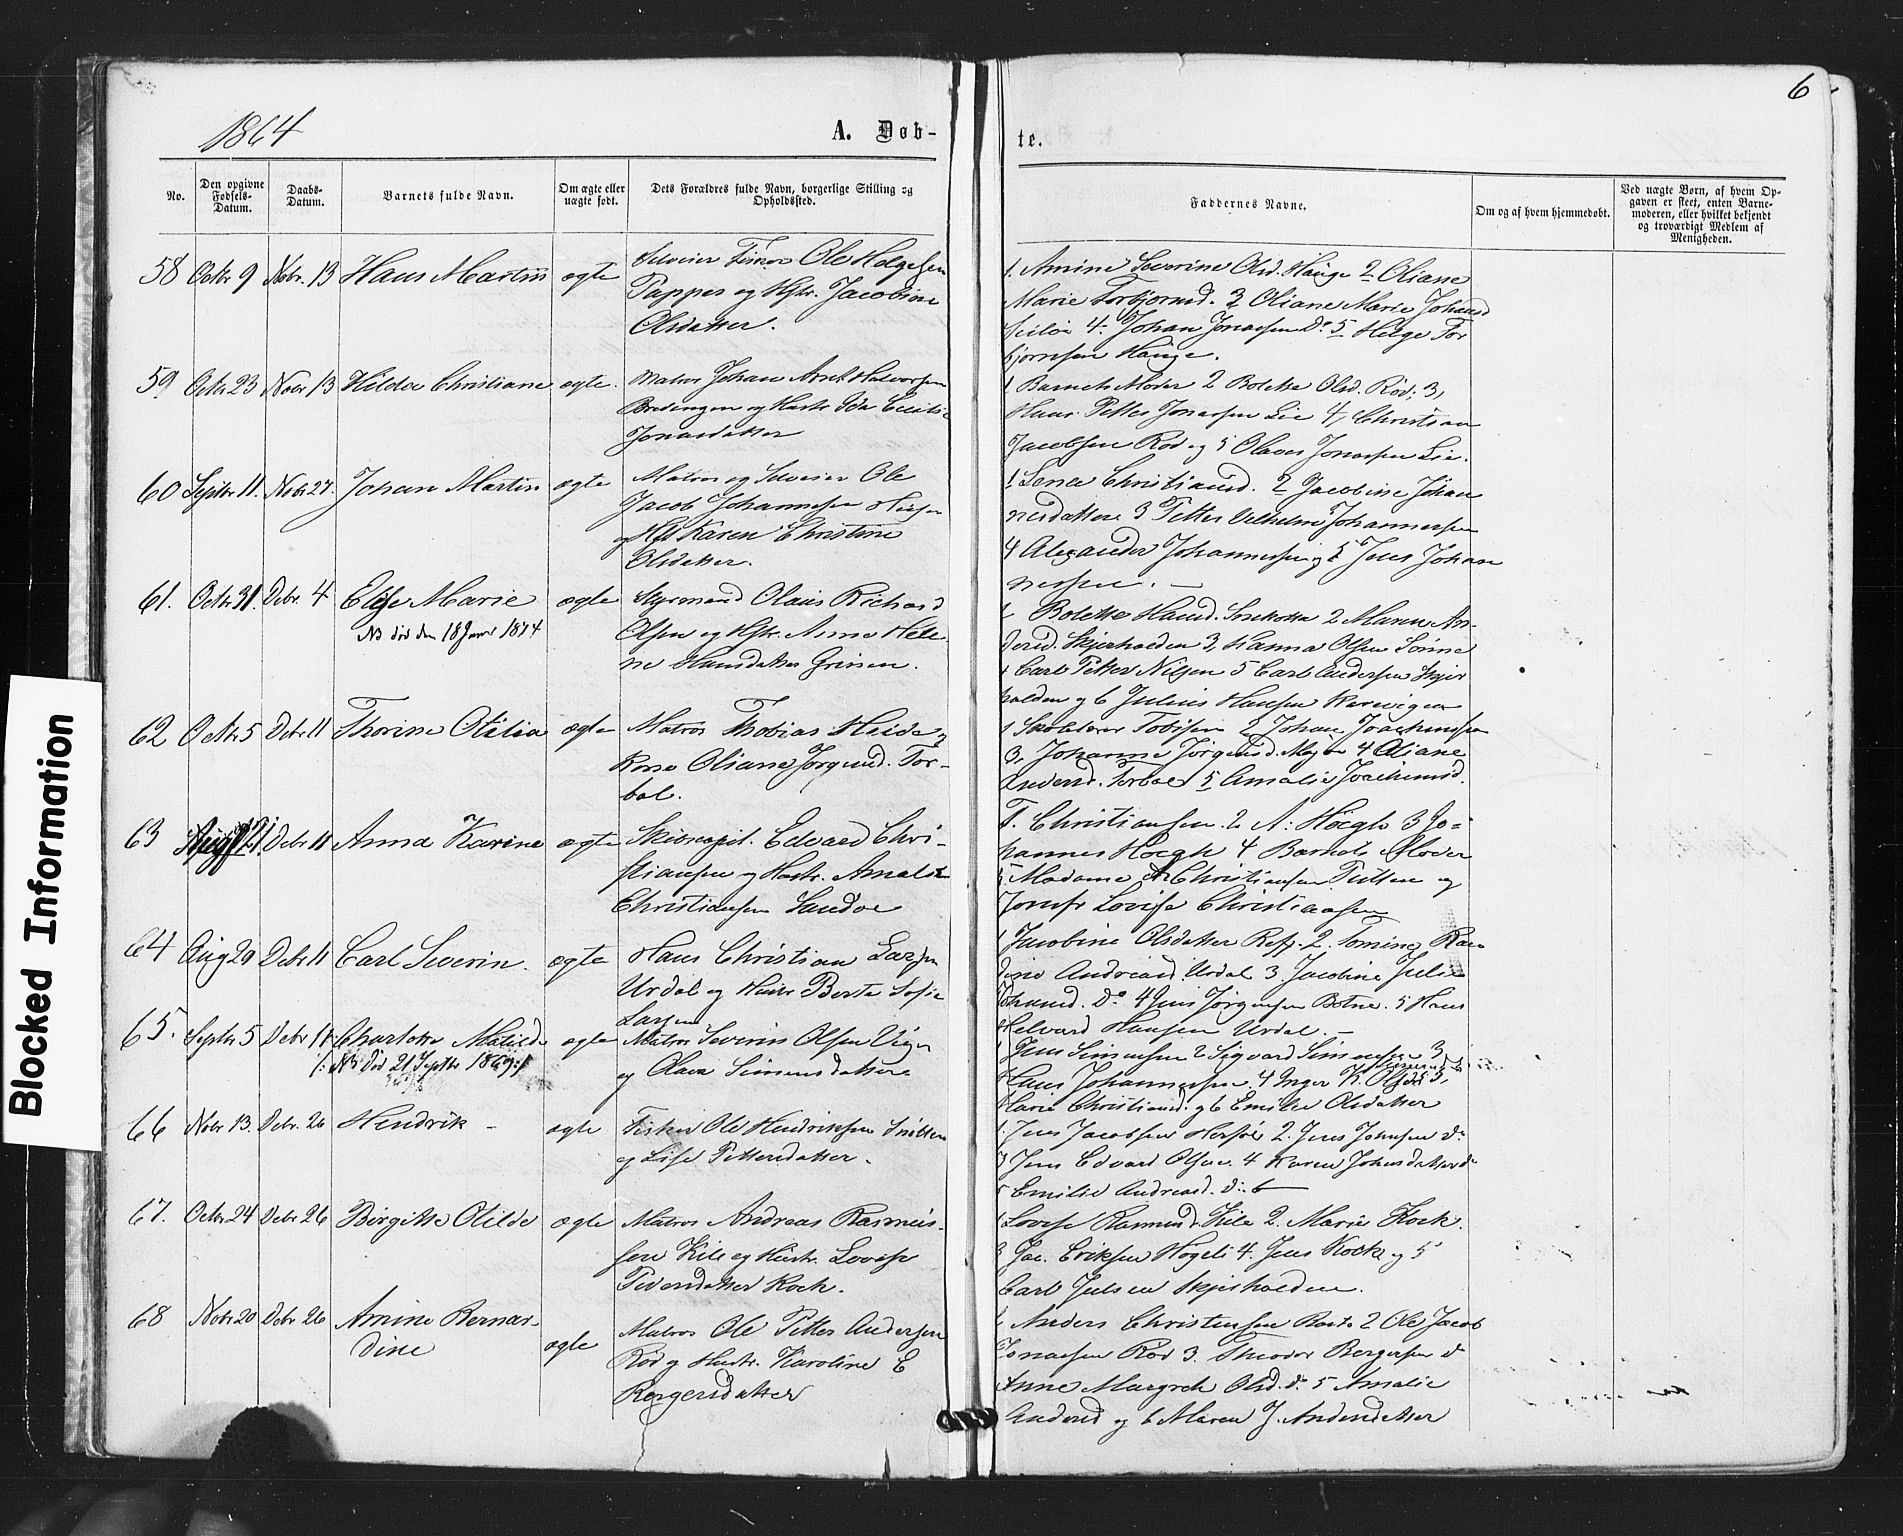 1864
A. Døb-
te.
6
No.
Den opgivne
Fødsels-
Datum.
Daabs-
Datum.
Barnets fulde Navn.
Om ægte eller
uægte født.
Dets Forældres fulde Navn, borgerlige Stilling og
Opholdssted.
Faddernes Navne.
Om og af hvem hjemmedøbt.
Ved uægte Børn, af hvem Op-
gaven er skeet, enten Barne-
moderen, eller hvilket bekjendt
og troværdigt Medlem af
Menigheden.
58 Octbr 9 Novbr. 13 Hans Martin ægte
Ole Helgesen
og Hstr. Jacobine
Olsdatter.
1. Amine Severine Olsd. Hauge 2 Oliane
Marie Torbjørnsd. 3 Oliane Marie Johansd
4. Johan Jonassen Do 5 Helge Tor
bjørnsen Hauge.
59 Octbr 23 Novbr 13 Hilda Christiane ægte.
Matros Johan Halvorsen
og Hustr. Ida
Jonasdatter
1 Barnets Moder 2 Bolette Olsd. Rød; 3,
Petter Jonassen Lie 4, Christian
Jacobsen Rød og 5 Olaves Jonassen Lie.
60 Septbr 11. Novbr 27. Johan Martin ægte
Matros og Ole
Jacob Johannesen
og Hst Karen Christine
Olsdatter.
1 Lena Christiansd. 2 Jacobine Johan
nesdatter 3 Petter Vilhelm Johannessen
4 Alexander Johannessen og 5 Jens Johan
nessen. —
61. Octbr 31. Debr. 4 Elise Marie ægte
NB død den 18 Janr 1874
Styrmand Olaus Richard
Olsen og Hstr. Anne Hele
ne Hansdatter Grinen.
1 Bolette Hansd. 2 Maren An-
dersd. Skjerholden 3, Hanna Olsen
4 Carl Petter Nilsen 5 Carl Andersen Skjer
holden og 6 Julius Hansen
62 Octbr 5 Debr 11 Thorine Otilia ægte
Matros Thobias Heide og
Kone Oliane Jørgensd. Tor-
bal.
1 Tobisen 2 Johan Joachimsen
3, Johanne Jørgensd. 4 Oliane
Andersd. Torbal 5 Amalie Joachimsd.
63 Debr 11 Anna Karine ægte
Skibscapit. Edvard Chri-
stiansen og Hustr.
Christiansen Sandøe
T. Christiansen. 2 A: Høegh 3 Jo-
hannes Høegh 4 Barnets Moder
5 Madame Christiansen og
Jomfr Lovise Christiansen
64 Aug 29 Debr 11 Carl Severin. ægte
Hans Christian Larsen
Urdal og Hustr Berte Sofie
Larsen
1 Jacobine Olsdatter 2. Tomine
Andreasd. Urdal 3 Jacobine Julie
Do 4 Jens Jørgensen Botne. 5 Hans
Hansen Urdal. —
65. Septbr 5 Debr 11 Charlotte Matilde ægte
/: NB Død 21 Septbr 1869:/
Matros Severin Olsen
og Olava Simensdatter
1 Jens Simensen 2 Sigvard Simensen 3
Hans Johannessen. 4 Inger K. Olsdtr 5,
Marie Christiansd. og 6 Emilie Olsdatter
66 Novbr 13. Debr. 26 Hendrik – ægte
Fisker Ole Hendriksen
og Lise Pettersdatter.
1. Jens Jacobsen 2. Jens Johnsen do
3 Jens Edvard Olsen. 4 Karen Johnsdatter do
5 Emilie Andreasd. do 6 —
67. Octbr 24 Debr 26 Birgitte Otilde ægte
Matros Andreas Rasmus-
sen Kile og Hustr. Lovise
Kock.
1 Lovise Rasmusd Kile 2. Marie Kock.
3 Jac. Eriksen 4. Jens Kock og 5
Carl Julsen Skjerholden.
68 Novbr 20 Debr 26 Amine Bernar-
dine ægte
Matros Ole Petter Andersen
Rød og Hustr. Karoline E
Børgersdatter
1 Anders Christensen 2 Ole Jacob
Jonassen Rød 3. Theodor Børgersen do
Anne Margreth Olsd. do. 5 Amalie
Andersd og 6 Maren J. Andersdatter
Blocked Information